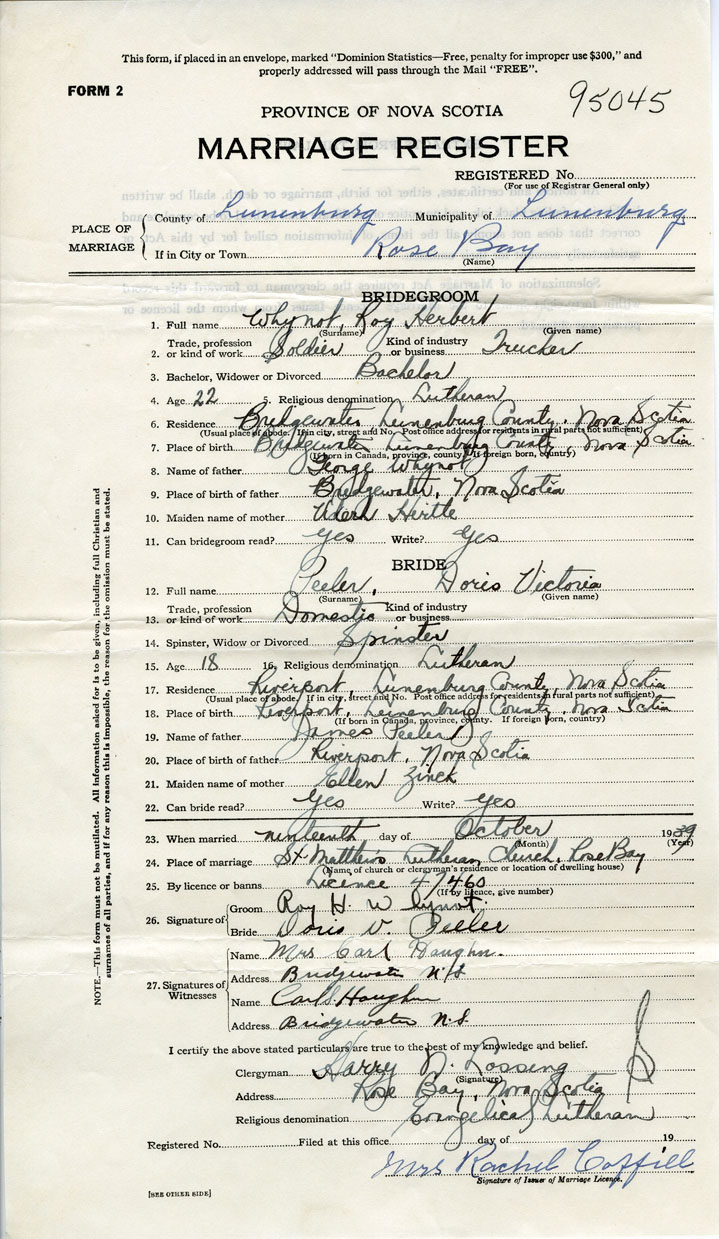 This form, if placed in an envelope, marked "Dominion Statistics—Free, penalty for improper use $300," and
properly addressed will pass through the Mail "FREE".
FORM 2
95045
PROVINCE OF NOVA SCOTIA
MARRIAGE REGISTER
REGISTERED No.
(For use of Registrar General only)
PLACE OF MARRIAGE
County of Lunenburg Municipality of Lunenburg
If in City or Town Rose Bay
(Name)
BRIDEGROOM
1. Full name Whynot, Roy Herbert
(Surname) (Given name)
2. Trade, profession or kind of work Soldier Kind of industry or business Trucker
3. Bachelor, Widower or Divorced Bachelor
4. Age 22 5. Religious denomination Lutheran
6. Residence Bridgewater, Lunenburg County, Nova Scotia
(Usual place of abode. If in city, street and No. Post office address for residents in rural parts not sufficient)
7. Place of birth Bridgewater, Lunenburg County, Nova Scotia
(If born in Canada, province, county. If foreign born, country)
8. Name of father George Whynot
9. Place of birth of father Bridgewater, Nova Scotia
10. Maiden name of mother Hirtle
11. Can bridegroom read? Yes Write? Yes
BRIDE
12. Full name Peeler, Doris Victoria
(Surname) (Given name)
13. Trade, profession or kind of work Domestic Kind of industry or business
14. Spinster, Widow or Divorced Spinster
15. Age 18 16. Religious denomination Lutheran
17. Residence Riverport, Lunenburg County, Nova Scotia
(Usual place of abode. If in city, street and No. Post office address for residents in rural parts not sufficient)
18. Place of birth Riverport, Lunenburg County, Nova Scotia
(If born in Canada, province, county. If foreign born, country)
19. Name of father James Peeler
20. Place of birth of father Riverport, Nova Scotia
21. Maiden name of mother Ellen Zinck
22. Can bride read? Yes Write? Yes
23. When married ninteenth day of October 1939
(Month) (Year)
24. Place of marriage St. Matthew's Lutheran Church, Rose Bay
(Name of church or clergyman's residence or location of dwelling house)
25. By licence or banns Licence 47460
(If by licence, give number)
26. Signature of
Groom Roy H. Whynot.
Bride Doris V. Peeler
27. Signatures of Witnesses
Name Mrs Carl Haughn.
Address Bridgewater N.S.
Name Carl S. Haughn
Address Bridgewater N.S.
I certify the above stated particulars are true to the best of my knowledge and belief.
Clergyman Harry N. Lossing
(Signature)
Address Rose Bay, Nova Scotia
Religious denomination Evangelical Lutheran
Registered No. Filed at this office day of 19
Mrs Rachel Coffill
Signature of Issuer of Marriage Licence.
[SEE OTHER SIDE]
NOTE.—This form must not be mutilated. All information asked for is to be given, including full Christian and
surnames of all parties, and if for any reason this is impossible, the reason for the omission must be stated.